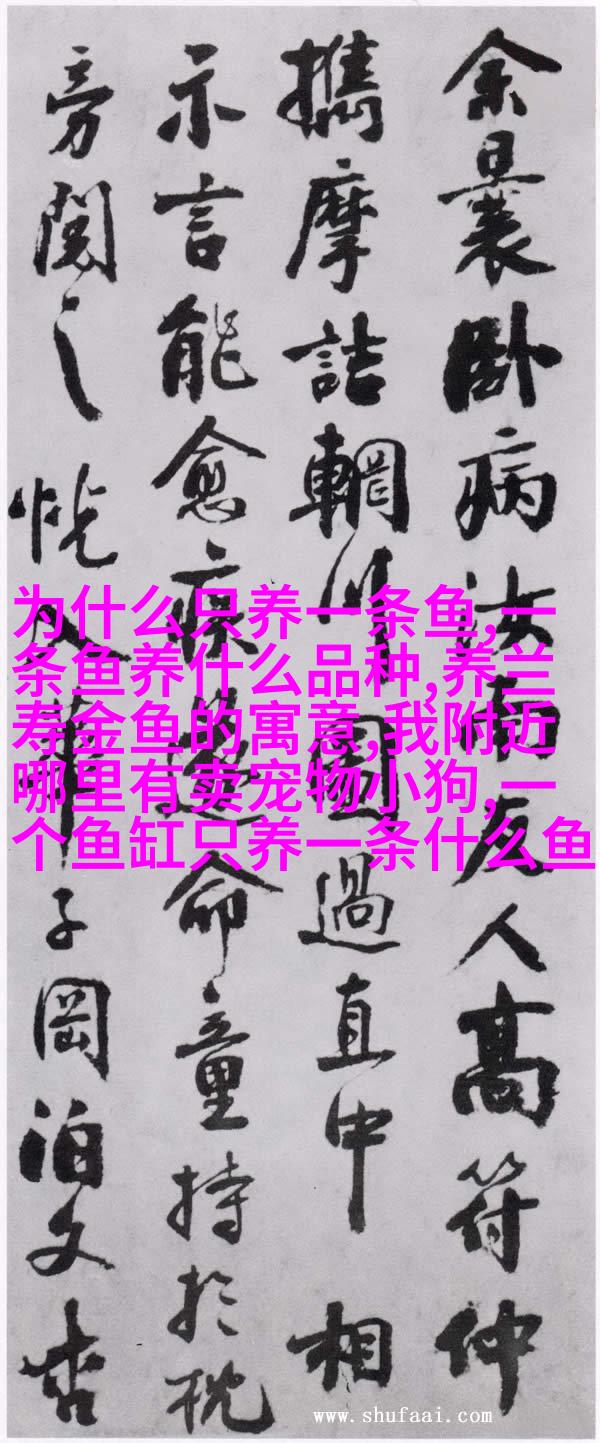 余曩卧病汝南友人高符仲
攜摩詰輞川圖過直中相
示言能愈疾遂命童持於枕
旁閱之恍入華子岡泊文杏
为什么只养一条鱼,一
条鱼养什么品种,养兰
寿金鱼的寓意,我附近
哪里有卖宠物小狗,一
个鱼缸只养一条什么鱼
www.shufaai.com